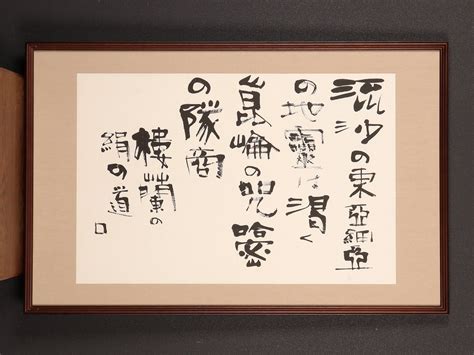 流沙の東亞細亞
の地靈は渇く
崑崘の呪
の隊商
樓蘭の
絹の道